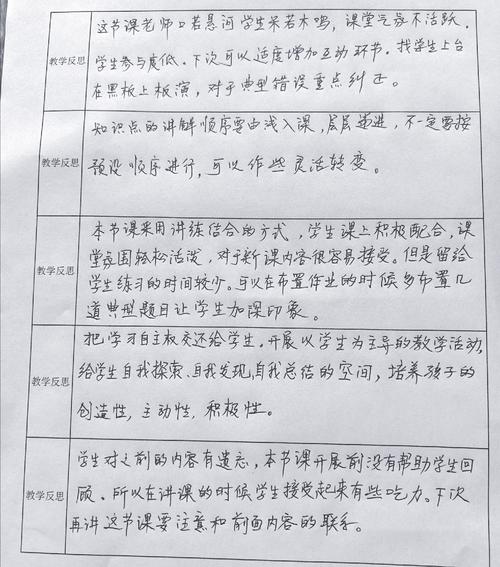 这节课老师口若悬河学生呆若木鸡，课堂气氛不活跃，
学生参与度低。下次可以适度增加互动环节。找学生上台
在黑板上板演，对于典型错误重点纠正。
教学反思
知识点的讲解顺序要由浅入深，层层递进，不一定要按
预设顺序进行，可以作些灵活转变。
教学反思
本节课采用讲练结合的方式，学生课上积极配合，课
堂氛围轻松活泼，对于新课内容很容易接受。但是留给
学生练习的时间较少。可以在布置作业的时候多布置几
道典型题目让学生加深印象。
教学反思
把学习自主权交还给学生，开展以学生为主导的教学活动，
给学生自我探索、自我发现、自我总结的空间，培养孩子的
创造性，主动性，积极性。
教学反思
学生对之前的内容有遗忘，本节课开展前没有帮助学生回
顾、所以在讲课的时候学生接受起来有些吃力。下次
再讲这节课要注意和前面内容的联系。
教学反思